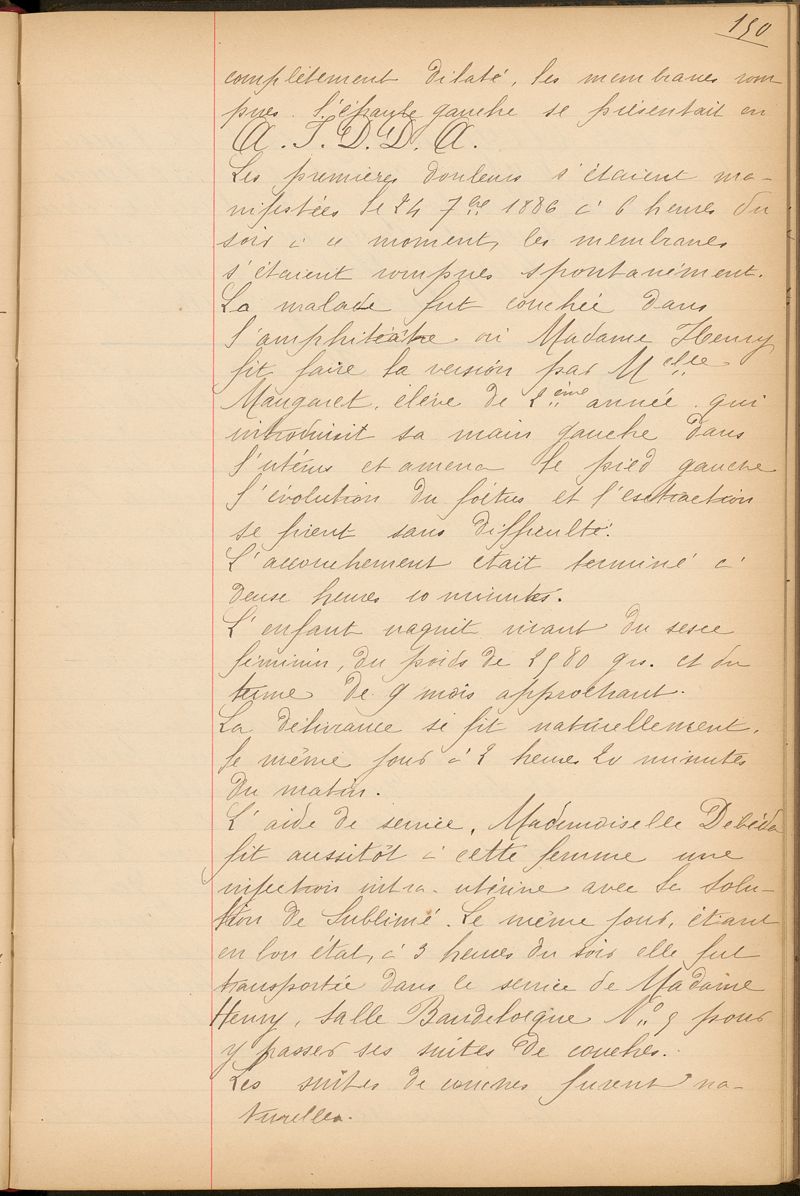 190
complètement dilaté, les membranes rom
pues. l'épaule gauche se présentait en
A. I. D. D. A.
Les premières douleurs s'étaient ma-
nifestées le 24 7bre 1886 à 6 heures du
soir à ce moment, les membranes
s'étaient rompues spontanément.
La malade fut couchée dans
l'amphitéatre où Madame Henry
fit faire la version par Melle
Maugaret, élève de 2ème année qui
introduisit sa main gauche dans
l'utérus et amena le pied gauche
l'évolution du foétus et l'extraction
se firent sans difficulté.
L'accouchement était terminé à
deuse heures 10 minutes.
L'enfant naquit vivant du sexe
féminin, du poids de 2980 grs. et du
terme de 9 mois approchant.
La délivrance se fit naturellement.
le même jour à 2 heures 20 minutes
du matin.
L'aide de service, Mademoiselle
fit aussitôt à cette femme une
injection intra-utérine avec la solu-
tion de Sublimé. Le même jour, étant
en bon état, à 3 heures du soir elle fut
transportée dans le service de Madame
Henry, salle Baudelocque No 9 pour
y passer ses suites de couches.
Les suites de couches furent na-
turelles.